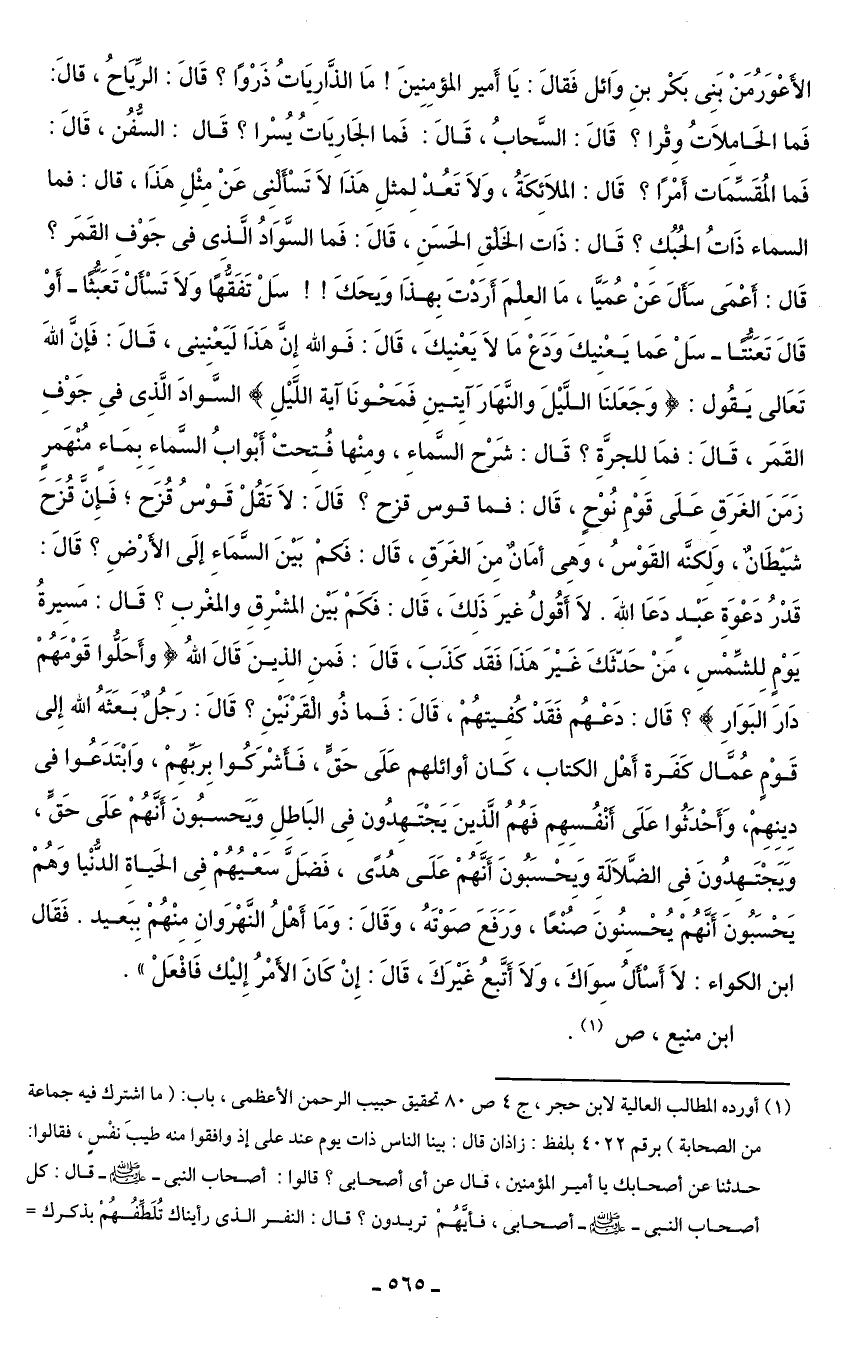 الأَعْوَرُ مَنْ بَنِى بَكْر بنِ وَائل فَقالَ : يَا أَمير المؤمنينَ ! مَا الذَّاريَاتُ ذَرْوًا ؟ قَالَ : الرِّيَاحُ ، قَالَ:
فَما الحَاملاَتُ وقْرا ؟ قَالَ : السَّحابُ ، قَـالَ : فَما الجَاريَاتُ يُسْرا ؟ قَـال : السُّفُن ، قَالَ :
فَما المُقَسِّمَات أمْرًا ؟ قَال : الملاَئكَةُ ، وَلاَ تَعُـدْ لمثل هَذَا لاَ تَسْألْنى عَنْ مثْل هَذَا ، قال : فَما
السماء ذَاتُ الحُبُك ؟ قَـال : ذَات الخَلْق الحَسَن ، قَالَ : فَما السَّوَادُ الَّـذى فى جَوْف القَمَر ؟
قَال : أَعْمَى سَألَ عَنْ عُمَيَّا ، مَا العلْمَ أَرَدْتَ بِهـذَا وَيحَكَ ! ! سَلْ تَفَقُّهًا وَلاَ تَسْأَلْ تَعَبُّثًا ـ أَوْ
قَالَ تَعَنُّتًـا ـ سَلْ عَما يَـعْنيكَ وَدَعْ مَا لاَ يَعْنيكَ ، قَالَ : فَـوالله إنَّ هَذَا لَيَعْنينى ، قَـالَ : فَإنَّ اللهَ
تَعَالى يَـقُول : ﴿ وَجَعَلنَا الـلَّيْلَ والنَّهَارَ آيتـينِ فَمَحْـونَا آية اللَّيْل ﴾ السَّـوادَ الَّذى فى جَوْف
القَمَر ، قَـالَ : فَمَا للجرَّة ؟ قَـال : شَرْح السَّماء ، ومنْها فُـتحتْ أَبْوابُ السَّماء بمَـاءٍ مُنْهَمرٍ
زَمَنَ الغَرَق عَـلَى قَوْم نُوْحٍ ، قَال : فَـما قـوس قزح ؟ قَالَ : لاَ تَقُلْ قَـوْسُ قُزَح ؛ فَـإنَّ قُزَحَ
شيْطَانٌ ، وَلكنَّه القَوْسُ ، وَهى أمَانٌ منَ الغَرَق ، قَال : فَكمْ بَيْنَ السَّمَاء إلَى الأَرْض ؟ قَالَ :
قَدْرُ دَعْوَة عَبْـد دَعَا اللهَ . لاَ أَقُولُ غَيرَ ذَلكَ ، قَال : فَكَمْ بَيْن المشْرق والمغْرب ؟ قَـال : مَسيرةُ
يَوْمٍ للشَّمْس ، مَنْ حَدّثَكَ غَيْـرَ هَذَا فَقَد كَذَبَ ، قَالَ : فَمن الذيـنَ قَالَ اللهُ ﴿ وأَحَلُّوا قَوْمَهُمْ
دَارَ البَوَار ﴾ ؟ قَال : دَعْـهُم فَقَدْ كُفـيتهُمْ ، قَالَ : فَـما ذُو الْقَرْنَيْنِ ؟ قَالَ : رَجُلٌ بَـعَثَهُ الله إلَى
قَـوْمٍ عُمَّـال كَفَـرة أَهْل الكتاب ، كَـان أوائلهم عَلَى حَقٍّ ، فَـأَشْرَكُـوا بربِّهمْ ، وَابْتَدَعُـوا فى
دينهمْ، وَأَحْدَثُوا عَلَى أَنْفُـسهم فَهُمُ الَّذينَ يَجْتَـهدُون فى البَاطل وَيَحسبُونَ أَنَّهُمْ عَلَى حَقٍّ ،
وَيَجْتَـهدُونَ فى الضَّلاَلَة وَيَحْسَبُونَ أَنَّهُمْ عَلَـى هُدًى ، فَضَلَّ سَعْيُهُمْ فى الحَيَاة الدُّنْيا وَهُمْ
يَحْسَبُونَ أَنَّهُمْ يُحْسنُونَ صُنْعًا ، وَرَفَعَ صَوْتَهُ ، وَقَالَ : وَمَا أَهْلُ النَّهْرَوان منْهُمْ بَبَعيـد . فَقَال
ابن الكواء : لاَ أسْأَلُ سوَاكَ ، وَلاَ أَتَّبعُ غَيْرَكَ ، قَالَ : إنْ كَانَ الأَمْرُ إلَيْك فَافْعَلْ » .
ابن منيع ، ض (١) .
(١) أورده المطالب العالية لابن حجر ، ج ٤ ص ٨٠ تحقيق حبيب الرحمن الأعظمى ، باب: ( ما اشترك فيه جماعة
من الصحابة ) برقم ٤٠٢٢ بلفظ : زاذان قال : بينا الناس ذات يوم عند على إذ وافقوا منه طيبَ نفْسٍ ، فقالوا:
حدثنا عن أصحابك يا أمير المؤمنين ، قال عن أى أصحابى ؟ قالوا : أصحاب النبى ـ ﷺ ـ قـال : كل
أصحاب النبـى ـ ﷺ ـ أصحـابى ، فـأيَّهُـمْ تريـدون ؟ قـال : النفـر الـذى رأينـاك تُلَطِّفُـهُمْ بذكـرك =
ـ ٥٦٥ ـ